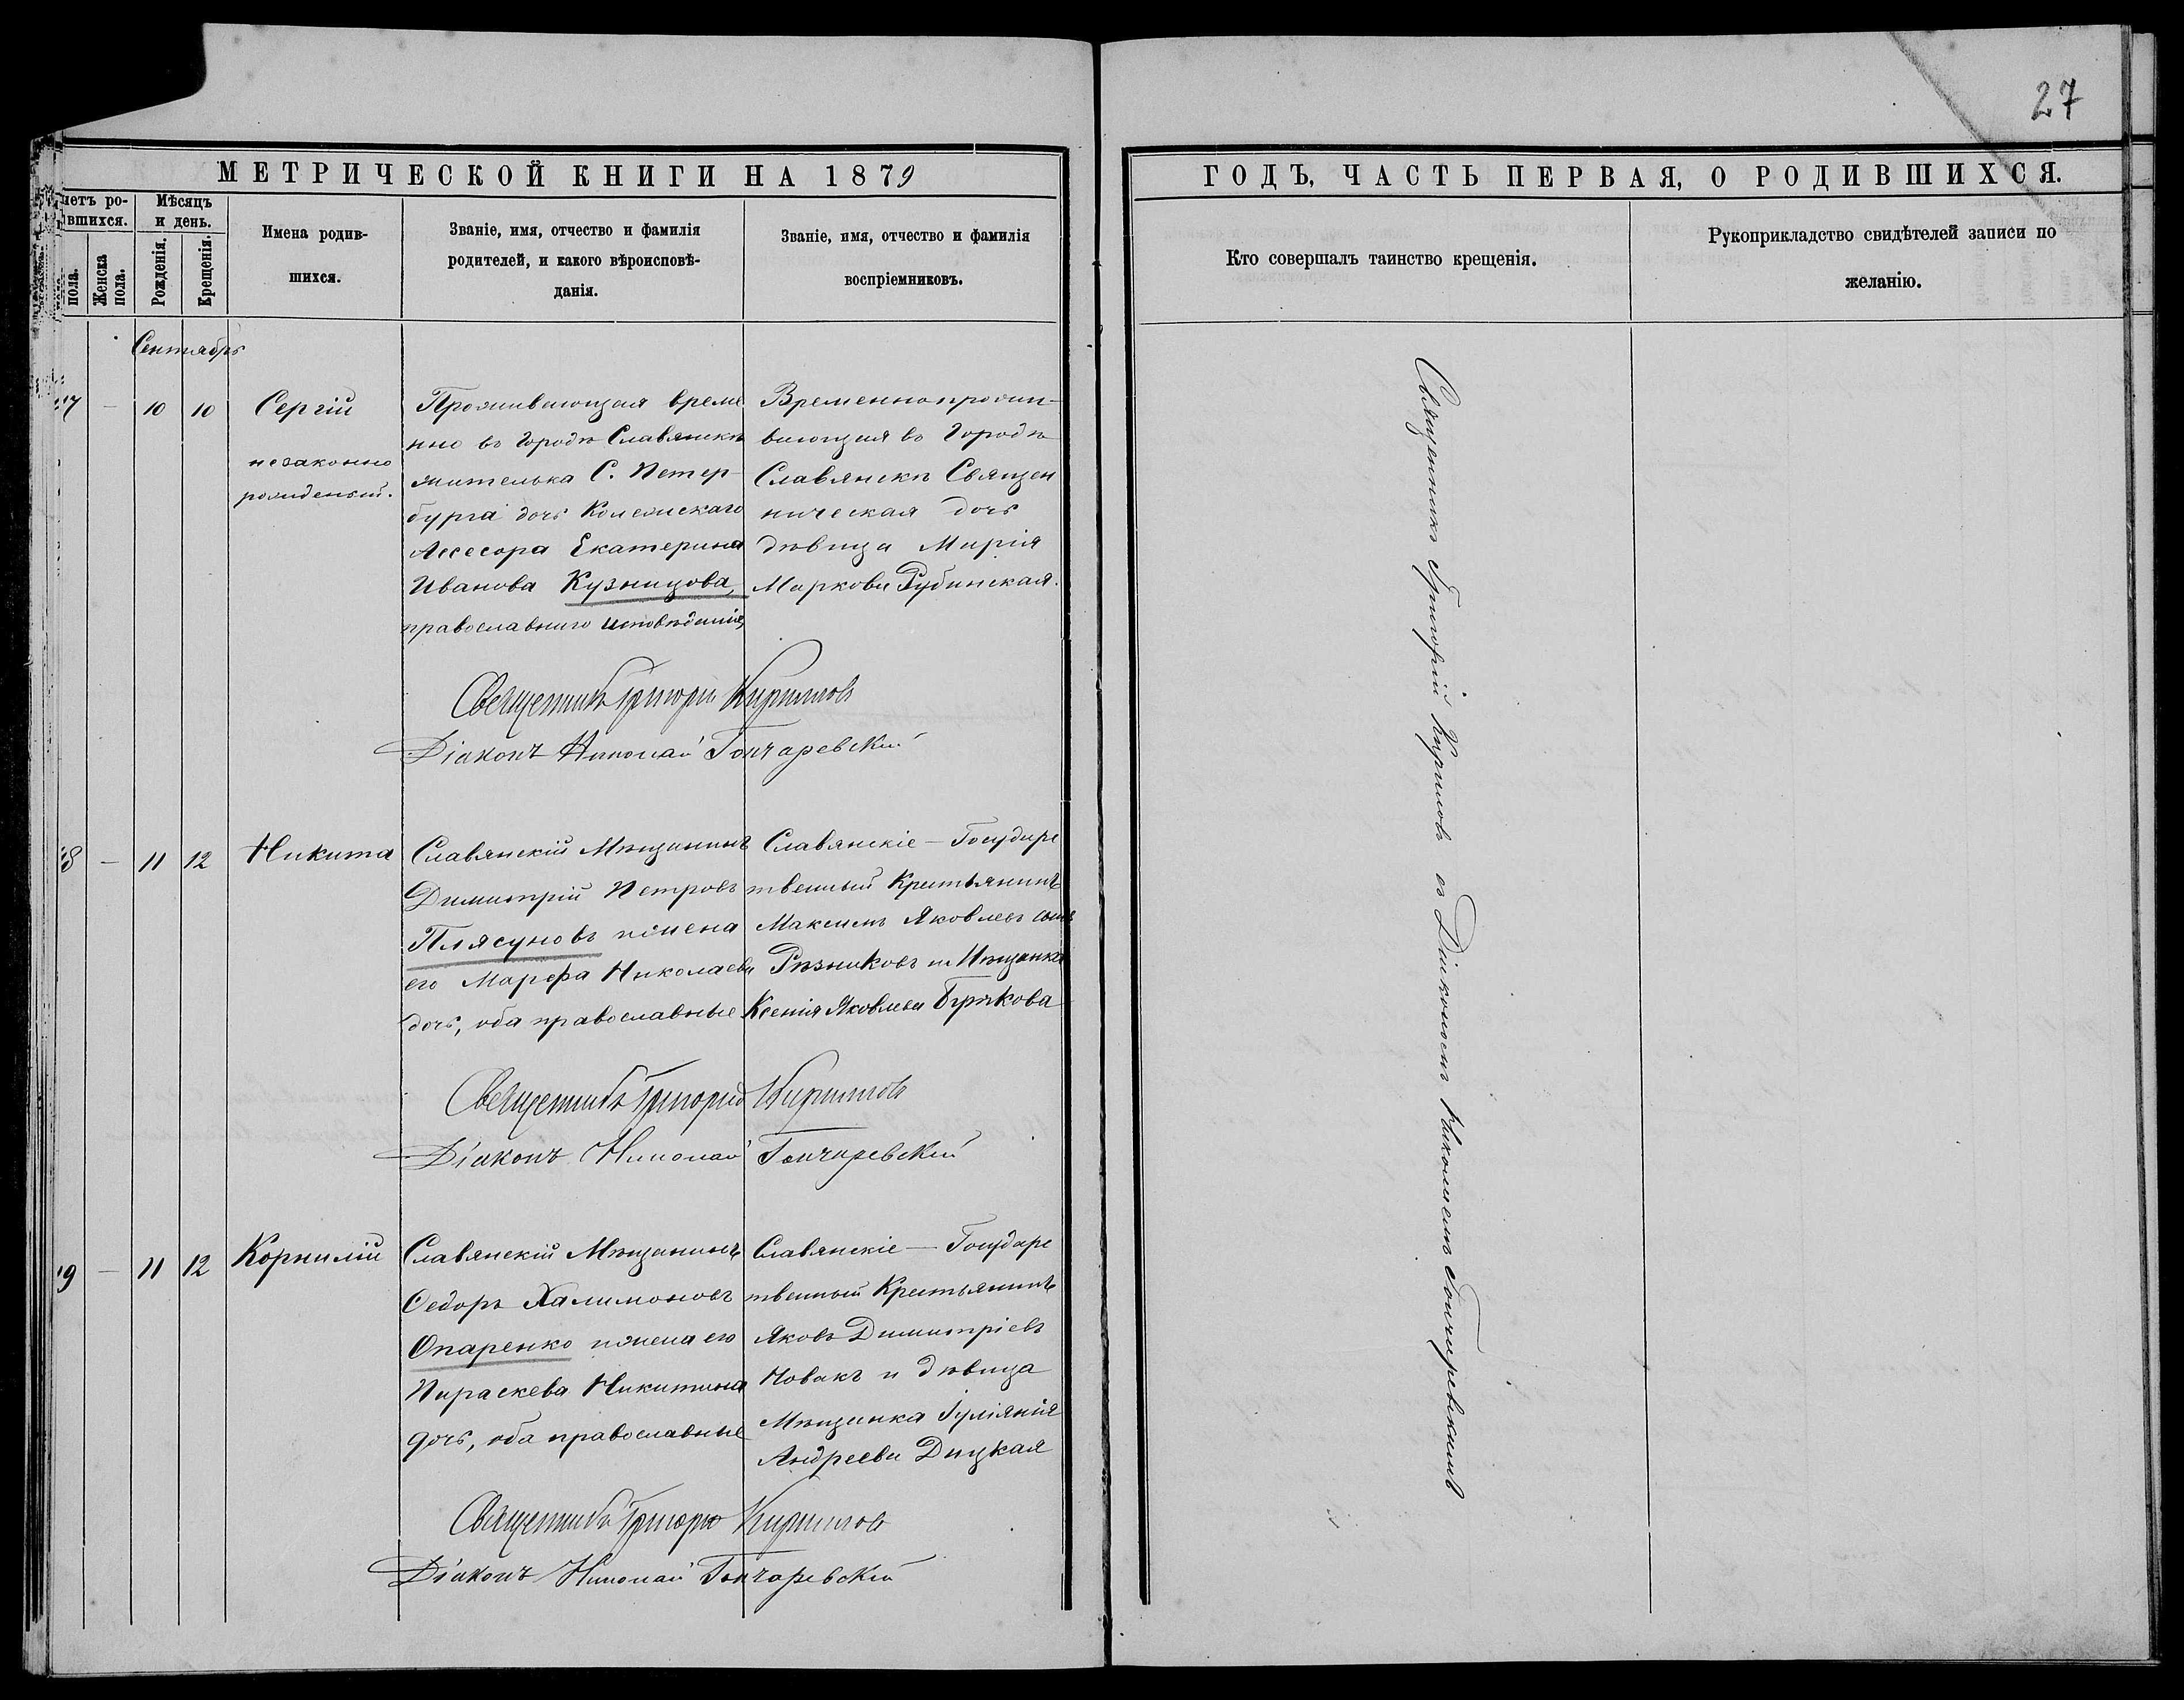 27
МЕТРИЧЕСКОЙ КНИГИ НА 1879
ГОДЪ, ЧАСТЬ ПЕРВАЯ, О РОДИВШИХСЯ.
четъ ро-
вшихся.
пола.
Женска
пола.
Мѣсяцъ
и день.
Рожденія.
Крещенія.
Имена родив-
шихся.
Званіе, имя, отчество и фамилія
родителей, и какого вѣроисповѣ-
данія.
Званіе, имя, отчество и фамилія
воспріемниковъ.
Кто совершалъ таинство крещенія.
Рукоприкладство свидѣтелей записи по
желанію.
Сентябрь
7 — 10 10
Сергій
незаконно
рожденый.
Проживающая време
нно въ Городѣ Славянскѣ
жителька С. Петер-
бурга дочь Колежскаго
Ассесора Екатерина
Иванова Кузницова,
православнаго исповѣданія,
Временно прожи-
вающая въ Городѣ
Славянскѣ Священ
ническая дочь
дѣвица Марія
Маркова Рубинская.
Священникъ Григорій Кириловъ
Діаконъ Николай Гончаревскій
8 — 11 12
Никита
Славянскій Мѣщанинъ
Димитрій Петровъ
Плясуновъ и жена
его Марѳа Николаева
дочь, оба православные
Славянскіе — Государс
твенный Крестьянинъ
Максимъ Яковлевъ сынъ
Рѣзниковъ и Мѣщанка
Ксенія Яковлева
Священникъ Григорій Кириловъ
Діаконъ Николай Гончаревскій
9 — 11 12
Корнилій
Славянскій Мѣщанинъ
Ѳедоръ Халимоновъ
Опаренко и жена его
Параскева Никитина
дочь, оба православные
Славянскіе — Государс
твенный Крестьянинъ
Яковъ Димитріевъ
Новакъ и дѣвица
Мѣщанка Іуліянія
Андреева Дицкая
Священникъ Григорій Кириловъ
Діаконъ Николай Гончаревскій
Священникъ Григорій Кириловъ съ Діакономъ Николаемъ Гончаревскимъ